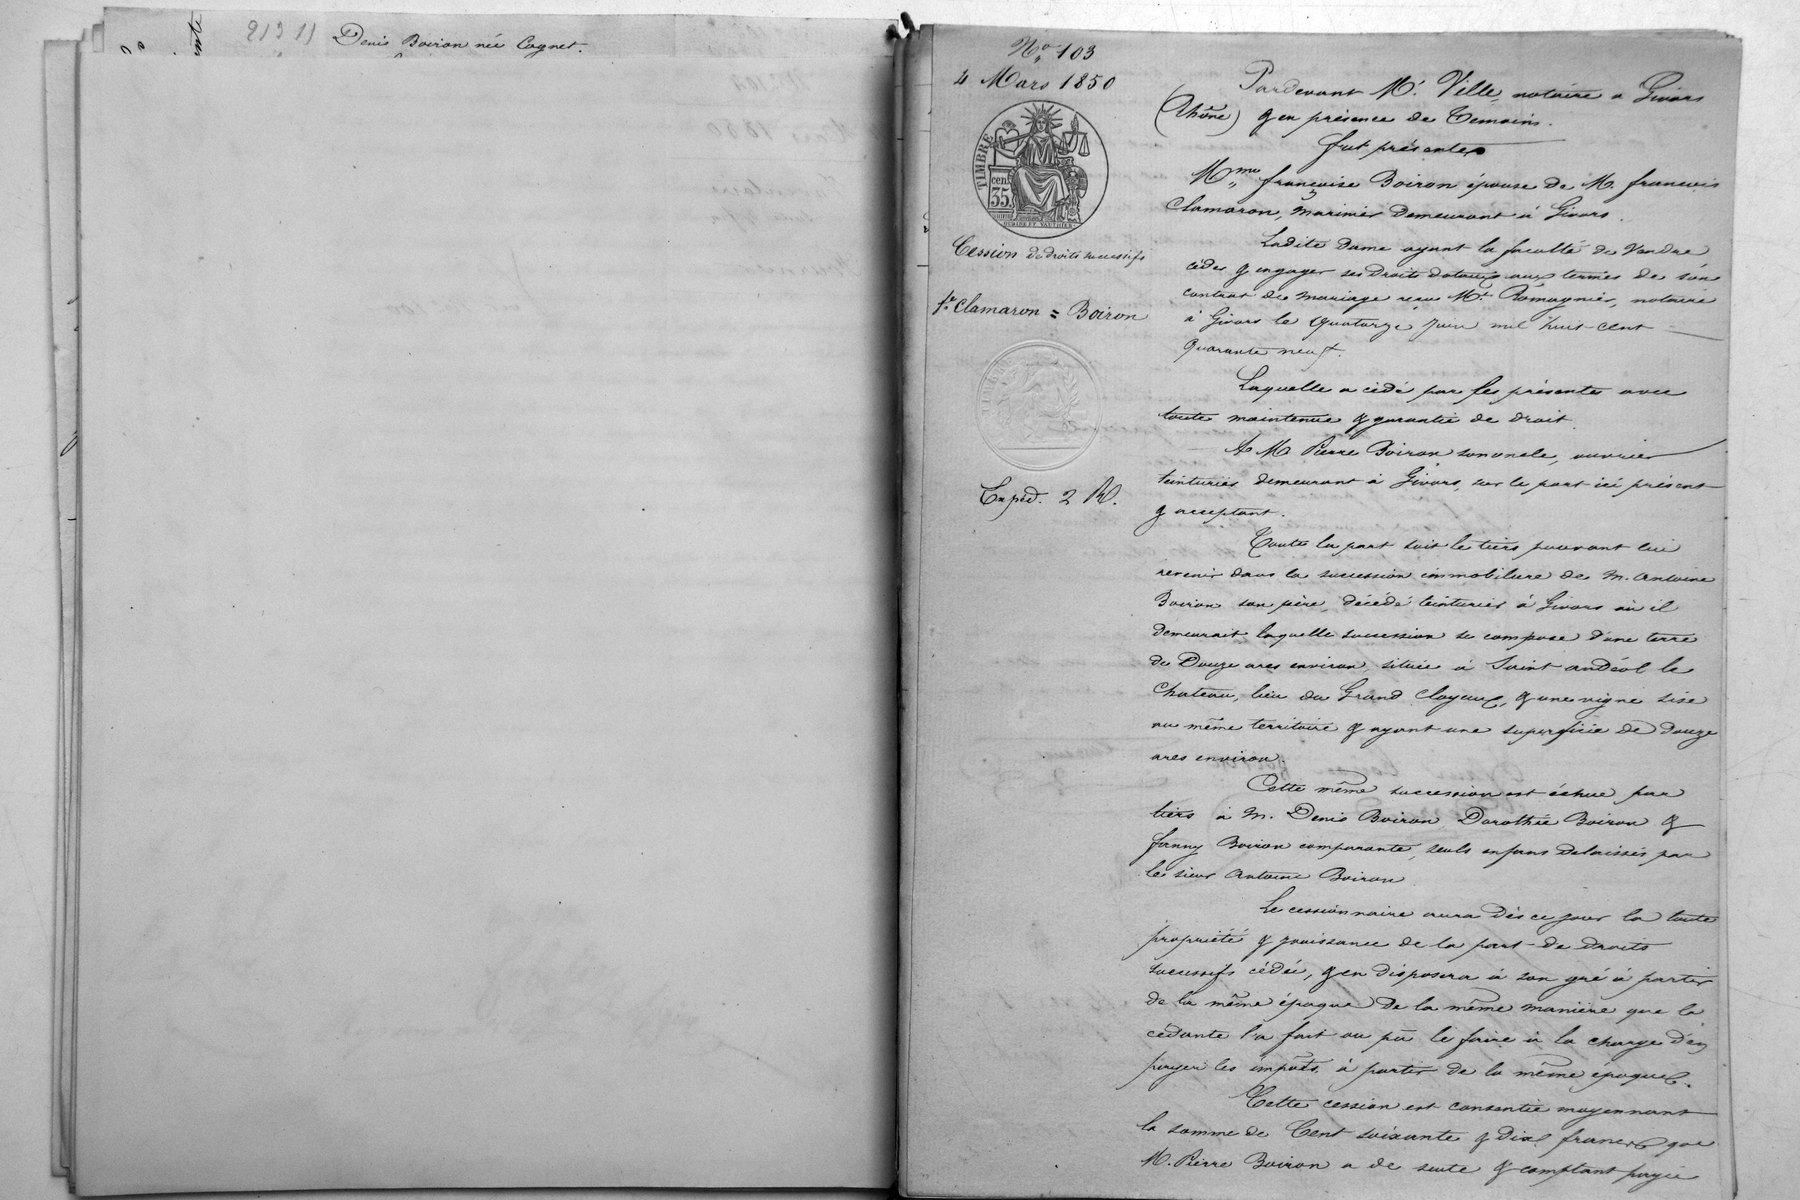 Denis Boiron née Cognet.
N° 103
4 Mars 1850
TIMBRE
cent.
35.
Cession de droits successifs
fe Clamaron = Boiron
Expéd. 2 R.
Pardevant Me. Ville, notaire à Givors
(Rhône) & en présence de Témoins.
fut présente
Mme françoise Boiron épouse de M. francois
Clamaron, marinier demeurant à Givors.
Ladite dame ayant la faculté de Vendre
céder & engager ses Droits dotaux aux termes de son
contrat de mariage reçu Me. Romagnier, notaire
à Givors le quatorze juin mil huit-cent
quarante neuf.
Laquelle a cédé par les présentes avec
toute maintenue & garantie de droit.
A M Pierre Boiron son oncle, ouvrier
teinturier demeurant à Givors, sur le port ici présent
& acceptant.
Toute la part soit le tiers pouvant lui
revenir dans la succession immobiliere de m. antoine
Boiron son père, décédé teinturier à Givors où il
demeurait laquelle succession se compose d'une terre
de Douze ares environ, située à Saint andéol le
Chateau, lieu du Grand Cloyaux, & une vigne sise
au même territoire & ayant une superficie de douze
ares environ.
Cette même succession est échue par
tiers à m. Denis Boiron, Dorothée Boiron &
fanny Boiron comparante, seuls enfans délaissés par
le sieur antoine Boiron
Le cessionnaire aura dès ce jour la toute
propriété & jouissance de la part de Droits
successifs cédée, & en disposera à son gré à partir
de la même époque De la même manière que la
cédante l'a fait ou pu le faire à la charge d'en
payer les impôts à partir de la même époque.
Cette cession est consentie moyennant
la somme de Cent soixante & Dix francs que
M. Pierre Boiron a de suite & comptant payée